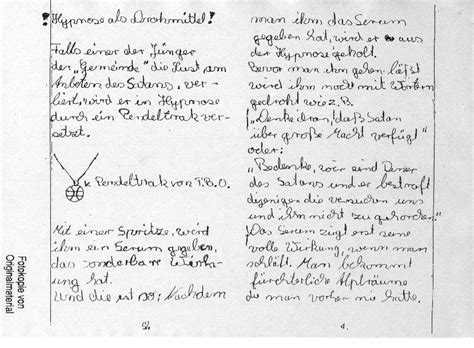 Hypnose als Druckmittel!
Falls einer der Jünger
der „Gemeinde" die Lust, am
Anbeten des Satans, ver-
liert, wird er in Hypnose
durch ein Pendeltrak ver-
setzt.
Pendeltrak von T.B.O.
Mit einer Spritze, wird
ihm ein Serum gegeben,
das sonderbare Wirk-
ung hat.
Und die ist so; Nachdem
man ihm das Serum
gegeben hat, wird er aus
der Hypnose geholt.
Bevor man ihm gehen läßt
wird ihm nach mit Worten
gedroht wie z.B.
„Denke dran, daß Satan
über große Macht verfügt"
oder:
„Bedenke, wir sind Diener
des Satans und er bestraft
diejenigen die versuchen uns
und ihm nicht zu gehorchen."
Das Serum zeigt erst seine
volle Wirkung, wenn man
schläft. Man bekommt
fürchterliche Alpträume
die man vorher nie hatte.
4.
Fotokopie von
Originalmaterial